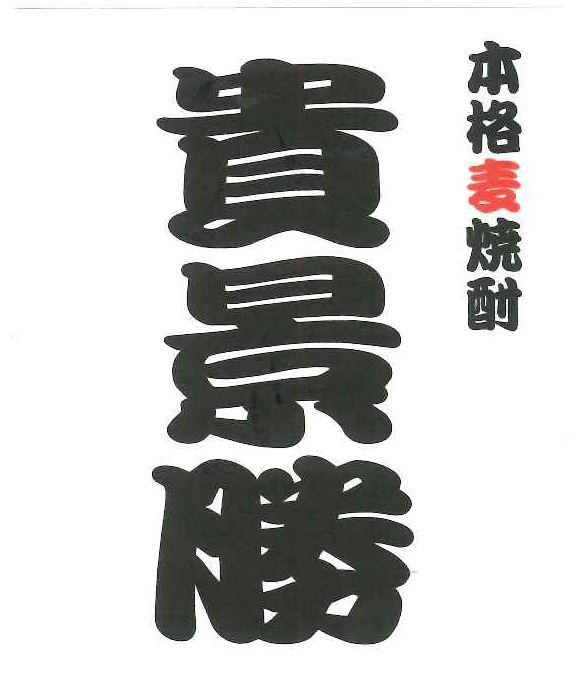 本格麦焼酎
貴景勝